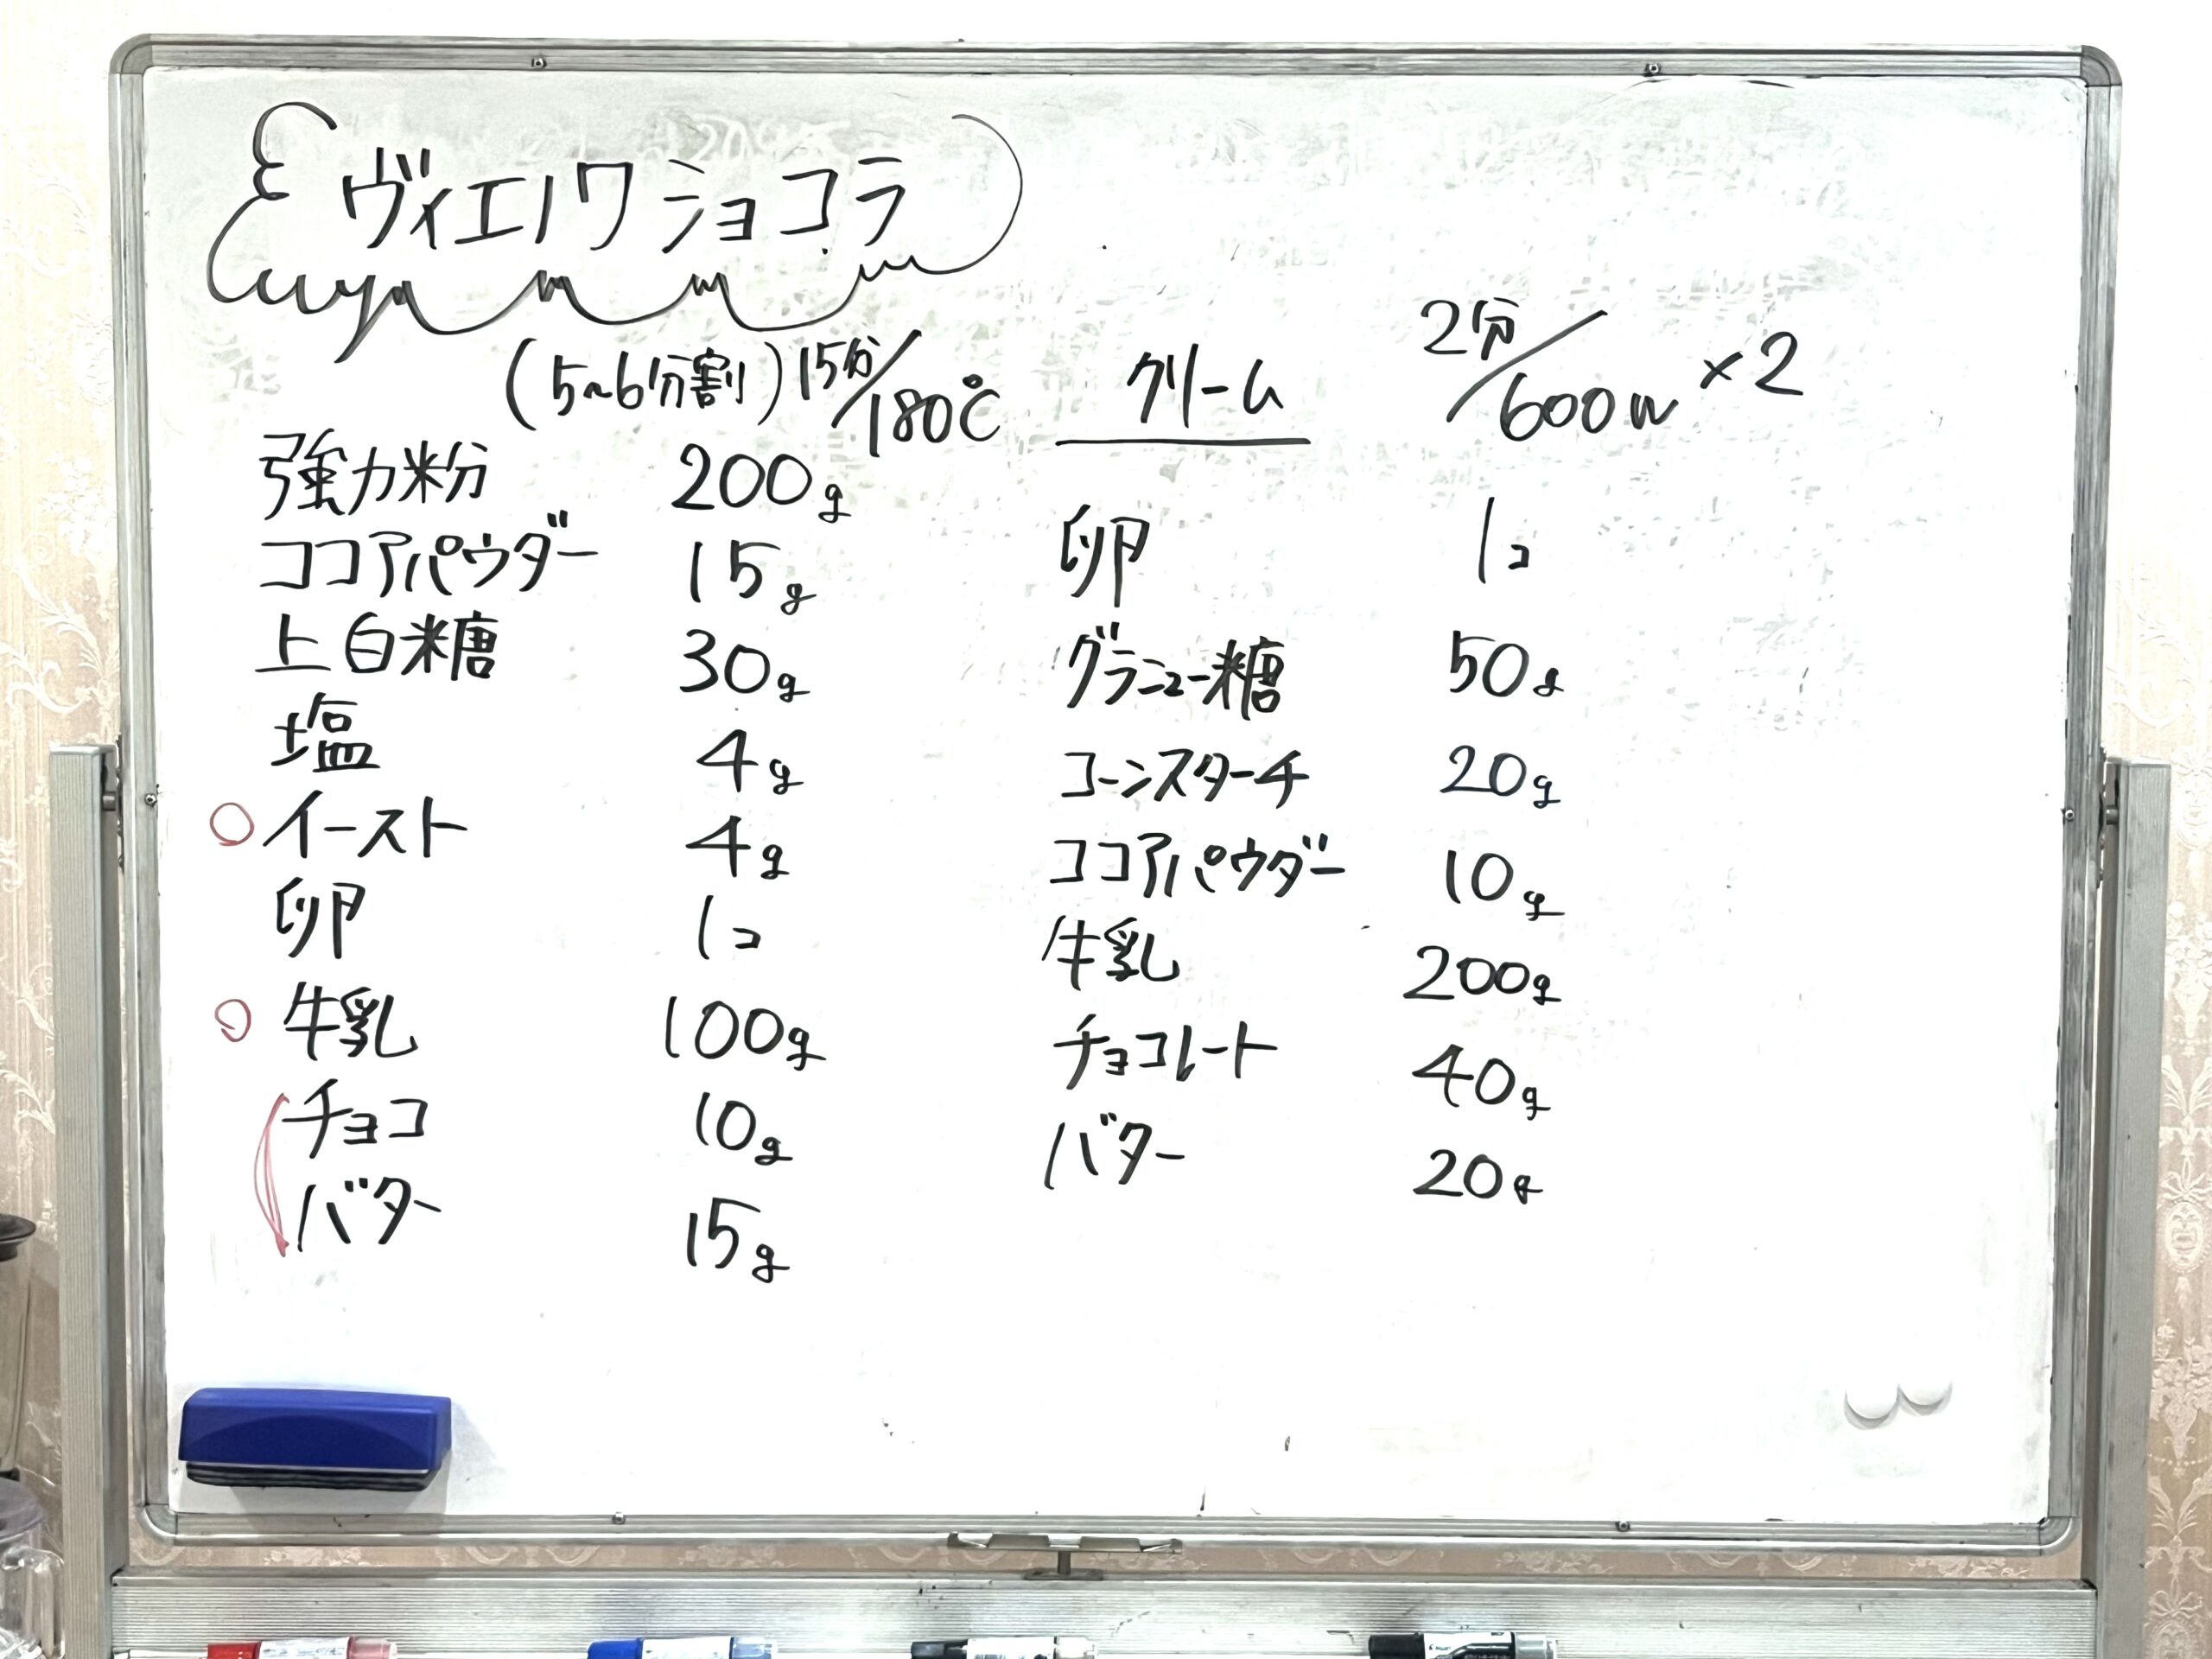 ヴィエノワショコラ
(5~6分割) 15分/180℃
強力粉 200g
ココアパウダー 15g
上白糖 30g
塩 4g
○イースト 4g
卵 1コ
○牛乳 100g
チョコ 10g
バター 15g
クリーム 2分/600w ×2
卵 1コ
グラニュー糖 50g
コーンスターチ 20g
ココアパウダー 10g
牛乳 200g
チョコレート 40g
バター 20g